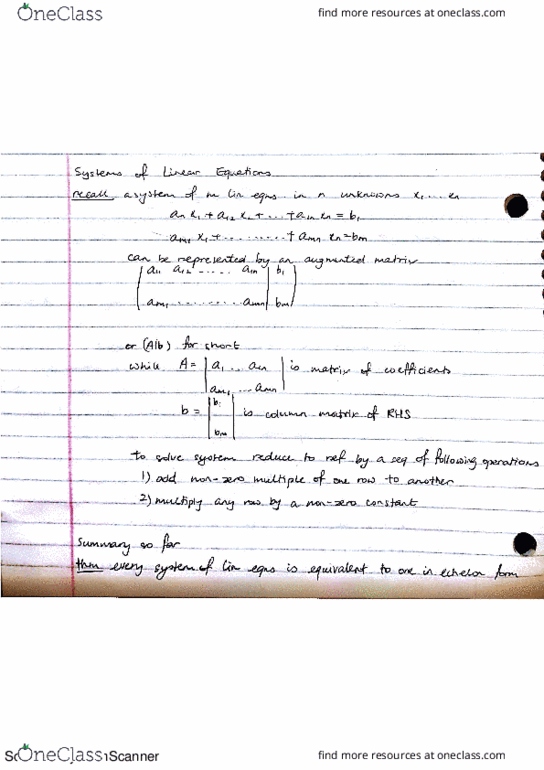 OneClass find more resources at oneclass.com
Systems of Linear Equations
recall a system of m lin eqns in n unknowns x1 ... xn
a11 x1 + a12 x2 + ... + a1n xn = b1
am1 x1 + .......... + amn xn = bm
can be represented by an augmented matrix
a11 a12 ...... a1n | b1
am1 .............. amn | bm
or (A|b) for short
while A = | a1 ... an | is matrix of coefficients
am1 ... amn
b = | b1 | is column matrix of RHS
bm
to solve system reduce to ref by a seq of following operations
1) add non-zero multiple of one row to another
2) multiply any row by a non-zero constant
Summary so far
thm every system of lin eqns is equivalent to one in echelon form
OneClass Scanner find more resources at oneclass.com